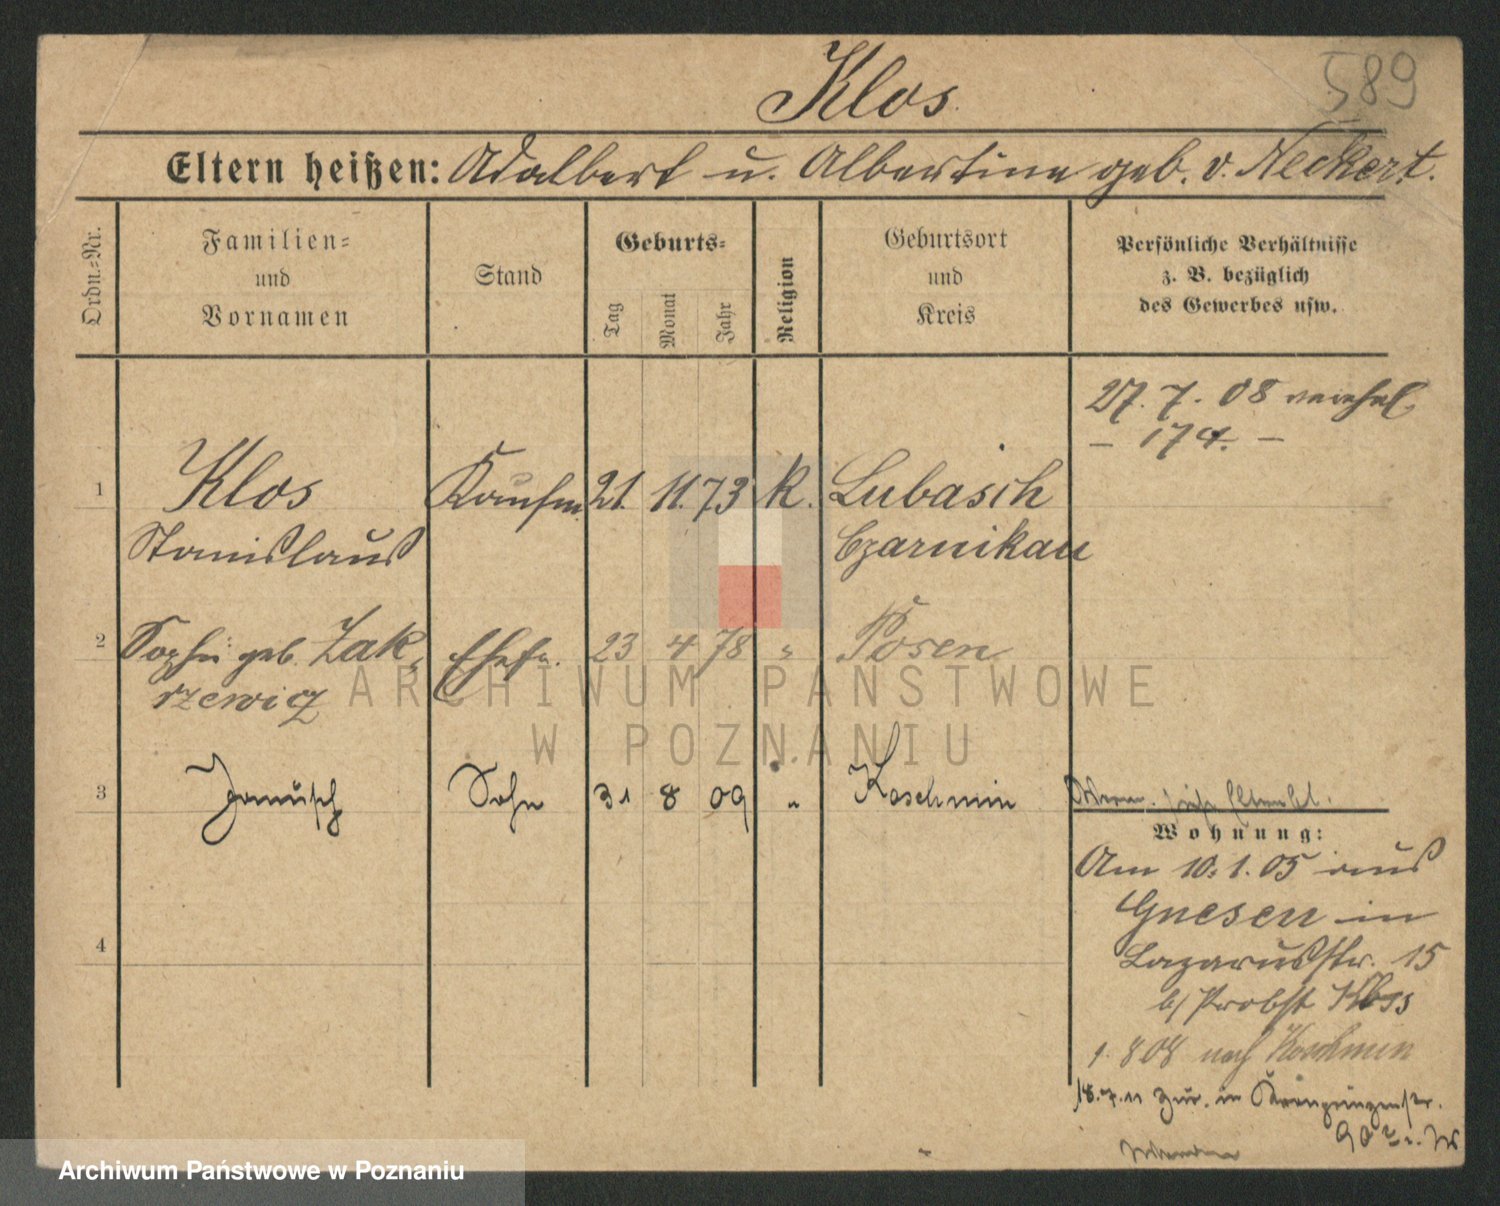 Klos.
589
Eltern heißen: Adalbert u. Albertine geb. v. Neckert.
Ordn.=Nr.
Familien=
und
Vornamen
Stand
Geburts=
Tag
Monat
Jahr
Religion
Geburtsort
und
Kreis
Persönliche Verhältnisse
z. B. bezüglich
des Gewerbes usw.
27. 7. 08
– 174. –
1 Klos Kaufm. 21. 11. 73 k. Lubasch
Stanislaus Czarnikau
2 Sophie geb. Zak- Ehefr. 23 4 78 " Posen
rzewicz
3 Janusch Sohn 31 8 09 " Koschmin
Wohnung:
Am 10. 1. 05 aus
Gnesen in
Lazarusstr. 15
b/ Probst Klos
1. 8 08 nach Koschmin
18.7.11 zur. in Kronprinzenstr.
90
4
ARCHIWUM PAŃSTWOWE
W POZNANIU
Archiwum Państwowe w Poznaniu